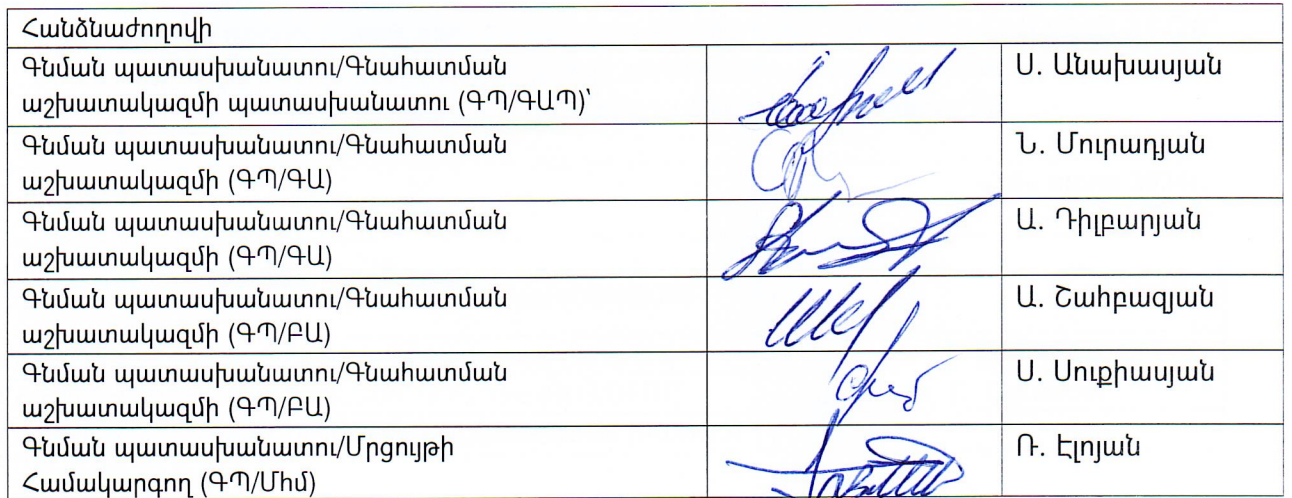 Հանձնաժողովի
Գնման պատասխանատու/Գնահատման
աշխատակազմի պատասխանատու (ԳՊ/ԳԱՊ)՝
Ս. Անախասյան
Գնման պատասխանատու/Գնահատման
աշխատակազմի (ԳՊ/ԳԱ)
Ն. Մուրադյան
Գնման պատասխանատու/Գնահատման
աշխատակազմի (ԳՊ/ԳԱ)
Ա. Դիլբարյան
Գնման պատասխանատու/Գնահատման
աշխատակազմի (ԳՊ/ԲԱ)
Ա. Շահբազյան
Գնման պատասխանատու/Գնահատման
աշխատակազմի (ԳՊ/ԲԱ)
Ս. Սուքիասյան
Գնման պատասխանատու/Մրցույթի
Համակարգող (ԳՊ/Մհմ)
Ռ. Էլոյան